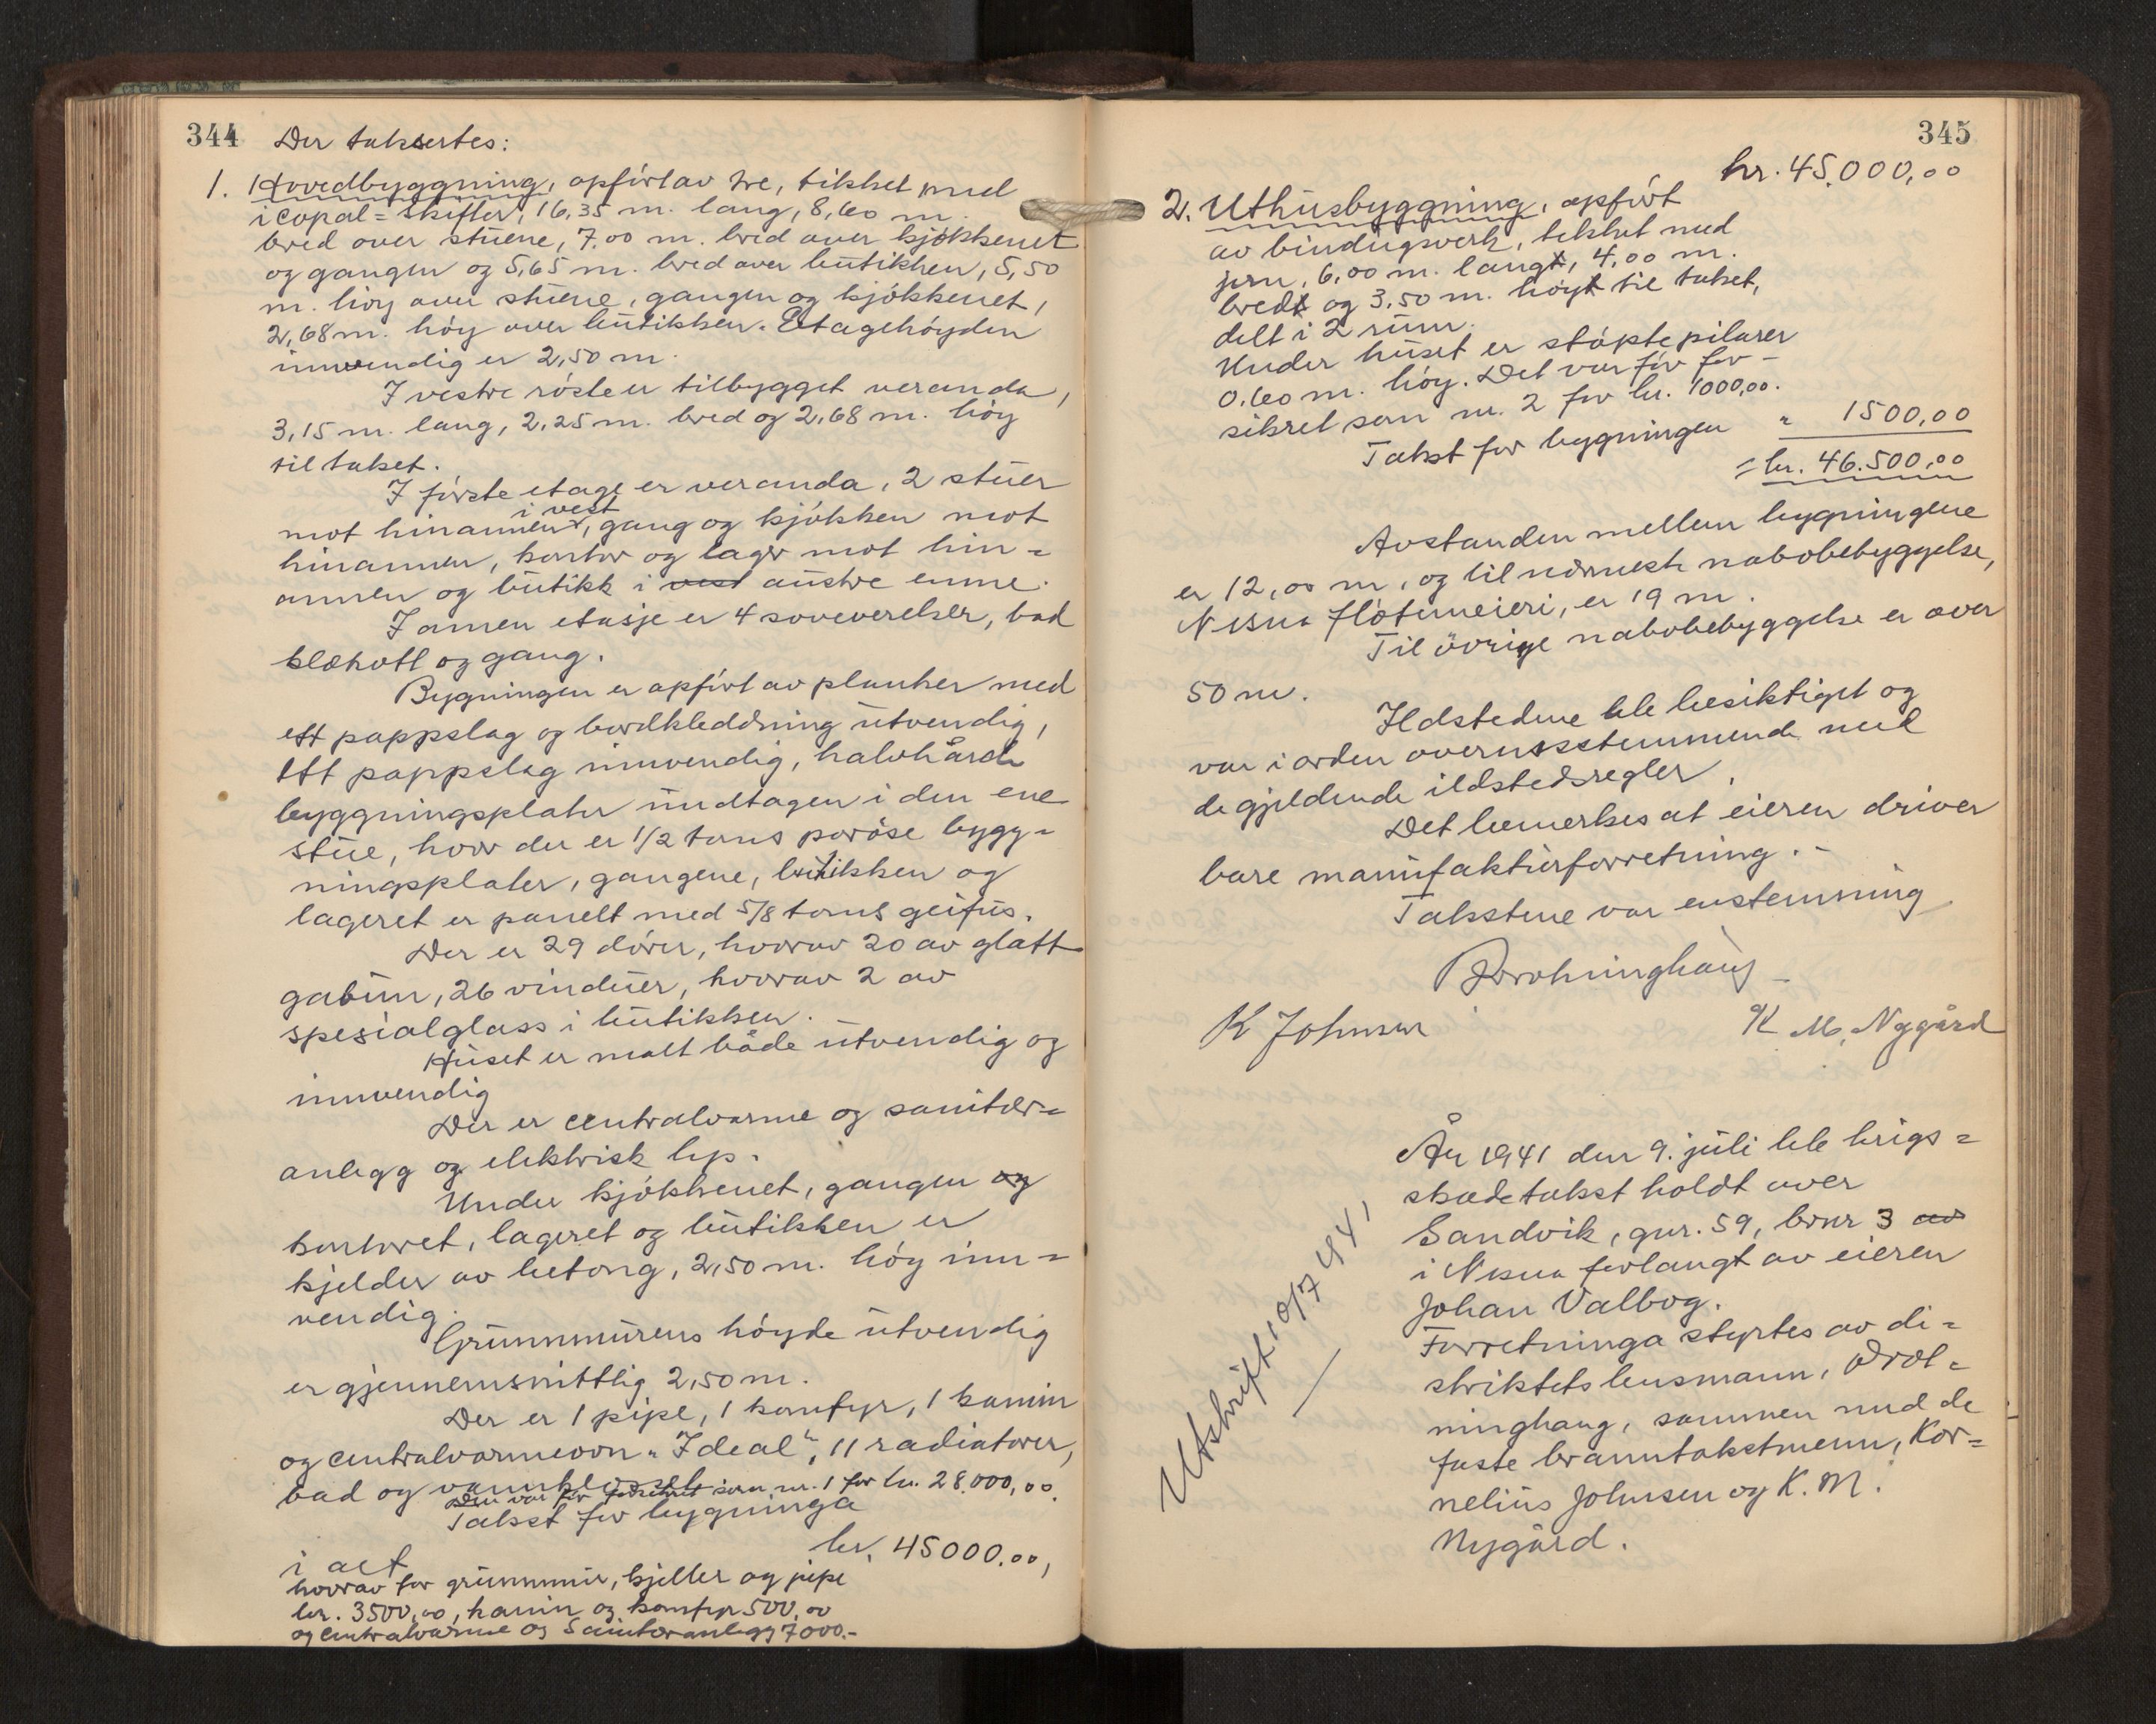 344
Der taksertes:
1. Hovedbyggning, opfört av tre, tikket med
i copal=skifter, 16,35 m. lang, 8,60 m.
bred over stuene, 7,00 m. bred over kjøkkenet
og gangen og 5,65 m. bred over butikken, 5,50
m. höy over stuene, gangen og kjökkenet,
2,68 m. höy over butikken. Etagehöyden
innvendig er 2,50 m.
I vestre röste er tilbygget veranda,
3,15 m. lang, 2,25 m. bred og 2,68 m. höy
til taket.
I förste etage er veranda, 2 stuer
i vest
mot hinannen, gang og kjökken mot
hinannen, kontor og lager mot hin=
annen og butikk i vest austre enne.
I annen etasje er 4 soveverelser, bad
klækott og gang.
Bygningen er opfört av planker med
ett pappslag og bordkleddning utvendig,
ett pappslag innvendig, halvhårde
byggningsplater undtagen i den ene
stue, hvor der er 1/2 toms poröse bygg=
ningsplater, gangene, butikken og
lageret er panelt med 5/8 toms geifus.
Der er 29 dörer, hvorav 20 av glatt
gabun, 26 vinduer, hvorav 2 av
spesialglass i butikken.
Huset er malt både utvendig og
innvendig
Der er centralvarme og sanitær=
anlegg og elektrisk lys.
Under kjökkenet, gangen og
kontoret, lageret og butikken er
kjelder av betong, 2,50 m. höy inn=
vendig.
Grunnmurens höyde utvendig
er gjennemsnittlig 2,50 m.
Der er 1 pipe, 1 komfyr, 1 kamin
og centralvarmeovn "Ideal", 11 radiatorer,
bad og vannklosset
Den var før forsikret som nr. 1 for kr. 28.000,00.
Takst for bygninga
i alt kr. 45000.00,
hvorav for grunnmur, kjeller og pipe
kr. 3500,00, kamin og komfyr 500,00
og centralvarme og Sanitæranlegg 7000.-
345
kr. 45.000,00
2. Uthusbyggning, opfört
av bindingsverk, tekket med
jern, 6,00 m. langt, 4,00 m.
bredt og 3,50 m. höyt til taket,
delt i 2 rum.
Under huset er stöpte pilarer
0,60 m. höy. Det var för for-
sikret som nr. 2 for kr. 1000,00.
Takst for bygningen " 1500,00
= kr. 46.500,00
Avstanden mellem bygningene
er 12,00 m, og til nærmeste nabobebyggelse,
Nesna fløtemeieri, er 19 m.
Til övrige nabobebyggelse er over
50 m.
Ildstedene ble besiktiget og
var i orden overensstemmende med
de gjeldende ildstedsregler.
Det bemerkes at eieren driver
bare manufakturforretning. -
Takstene var enstemmig
Drotninghaug
K Johnsen
K M. Nygård
År 1941 den 9. juli ble krigs=
skadetakst holdt over
Sandvik, gnr. 59, bnr 3 av
i Nesna forlangt av eieren
Johan Valbog.
Forretninga styrtes av di=
striktets lensmann, Drot=
ninghaug, sammen med de
faste branntakstmenn, Kor=
nelius Johnsen og K. M.
Nygård.
Utskrift 10/7 1941